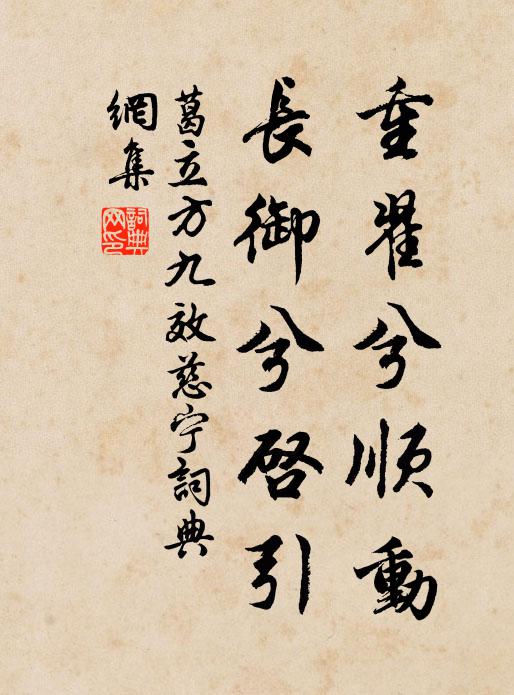 重翟兮順動
長御兮啓引
葛立方九效慈宁詞典
網集
詞典網印